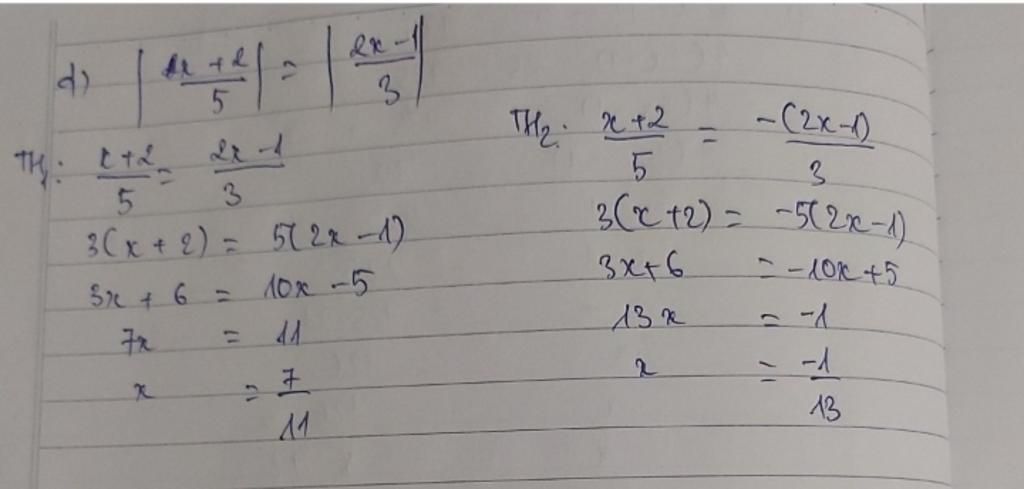 d) |x+2/5| = |2x-1/3|
TH1: x+2/5 = 2x-1/3
3(x+2) = 5(2x-1)
3x + 6 = 10x - 5
7x = 11
x = 7/11
TH2: x+2/5 = -(2x-1)/3
3(x+2) = -5(2x-1)
3x+6 = -10x+5
13x = -1
x = -1/13